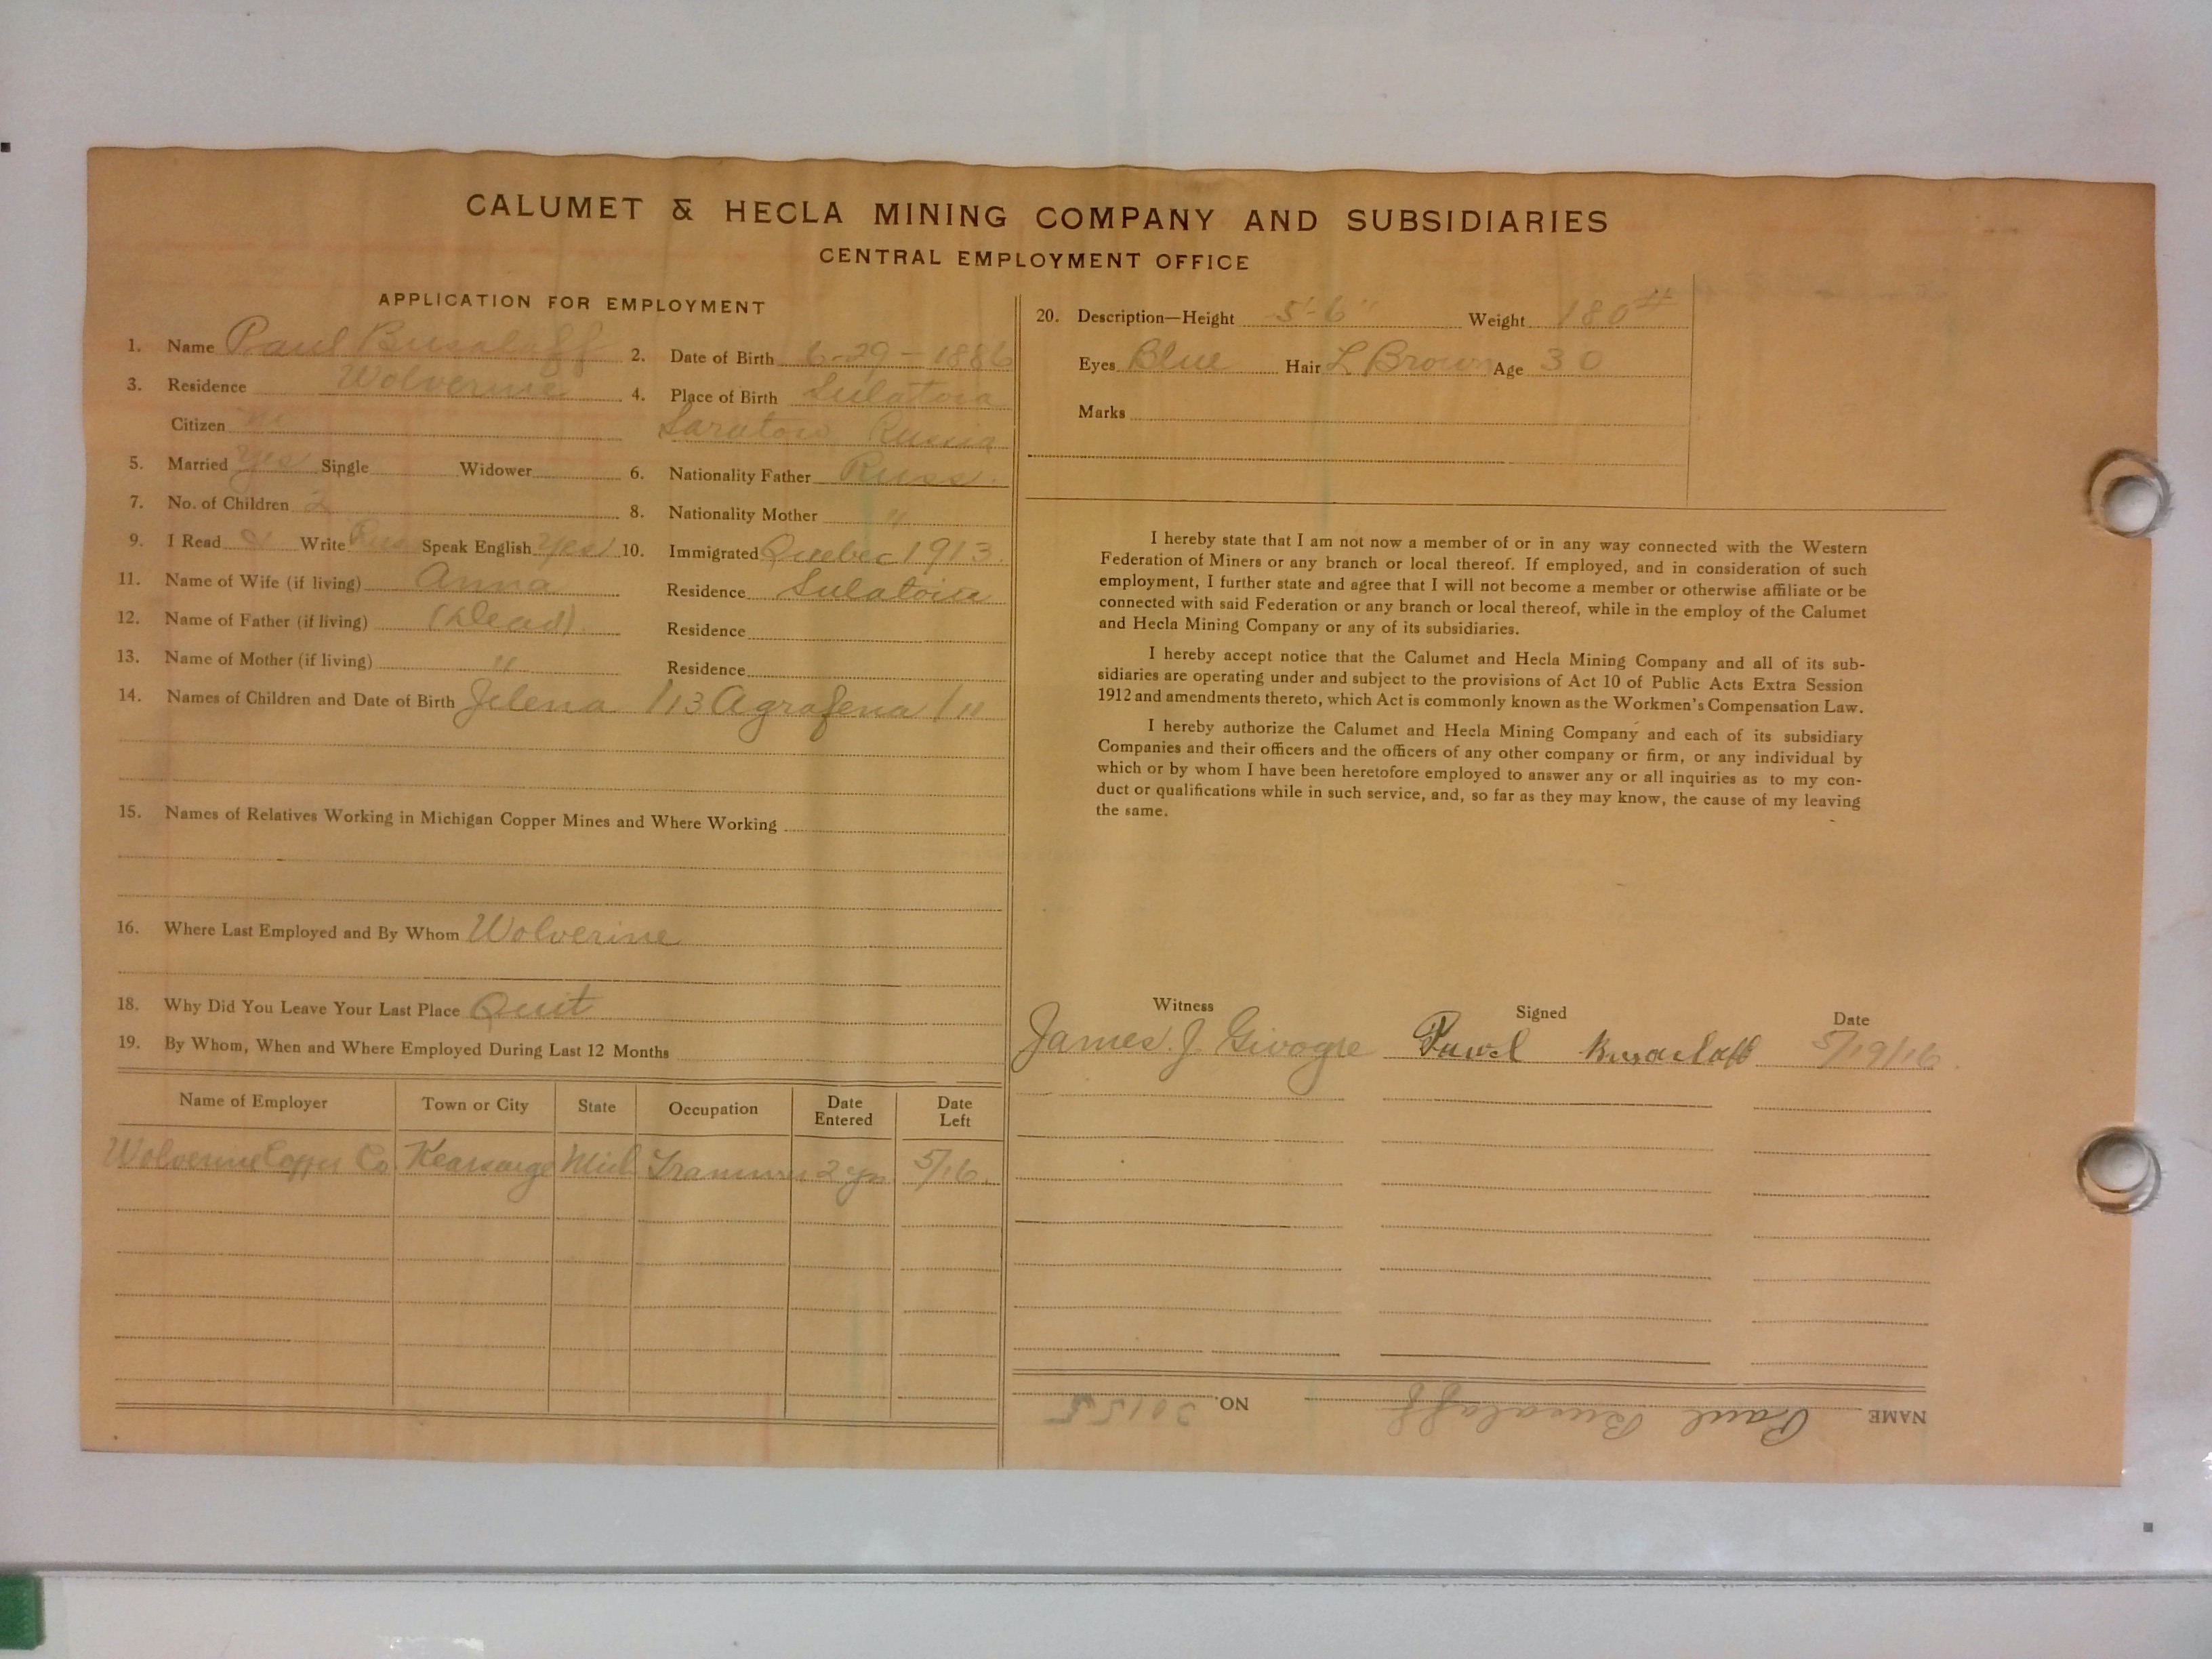 CALUMET & HECLA MINING COMPANY AND SUBSIDIARIES
CENTRAL EMPLOYMENT OFFICE
APPLICATION FOR EMPLOYMENT
1. Name Paul Busaloff 2. Date of Birth 6-29-1886
3. Residence Wolverine 4. Place of Birth
Citizen Saratow Russia
5. Married Yes Single Widower 6. Nationality Father Russ.
7. No. of Children 2 8. Nationality Mother "
9. I Read & Write Russ Speak English Yes 10. Immigrated Quebec 1913
11. Name of Wife (if living) Anna Residence
12. Name of Father (if living) (Dead) Residence
13. Name of Mother (if living) " Residence
14. Names of Children and Date of Birth Jelena /13 Agrafena / "
15. Names of Relatives Working in Michigan Copper Mines and Where Working
16. Where Last Employed and By Whom Wolverine
18. Why Did You Leave Your Last Place Quit
19. By Whom, When and Where Employed During Last 12 Months
Name of Employer Town or City State Occupation Date Entered Date Left
Wolverine Copper Co. Kearsarge Mich Trammer 2 yrs. 5/16.
20. Description—Height 5'-6" Weight 180#
Eyes Blue Hair L Brown Age 30
Marks
I hereby state that I am not now a member of or in any way connected with the Western
Federation of Miners or any branch or local thereof. If employed, and in consideration of such
employment, I further state and agree that I will not become a member or otherwise affiliate or be
connected with said Federation or any branch or local thereof, while in the employ of the Calumet
and Hecla Mining Company or any of its subsidiaries.
I hereby accept notice that the Calumet and Hecla Mining Company and all of its sub-
sidiaries are operating under and subject to the provisions of Act 10 of Public Acts Extra Session
1912 and amendments thereto, which Act is commonly known as the Workmen's Compensation Law.
I hereby authorize the Calumet and Hecla Mining Company and each of its subsidiary
Companies and their officers and the officers of any other company or firm, or any individual by
which or by whom I have been heretofore employed to answer any or all inquiries as to my con-
duct or qualifications while in such service, and, so far as they may know, the cause of my leaving
the same.
Witness Signed Date
James. J. Givogre Pawel 5/19/16
NAME Paul Busaloff NO. 20155